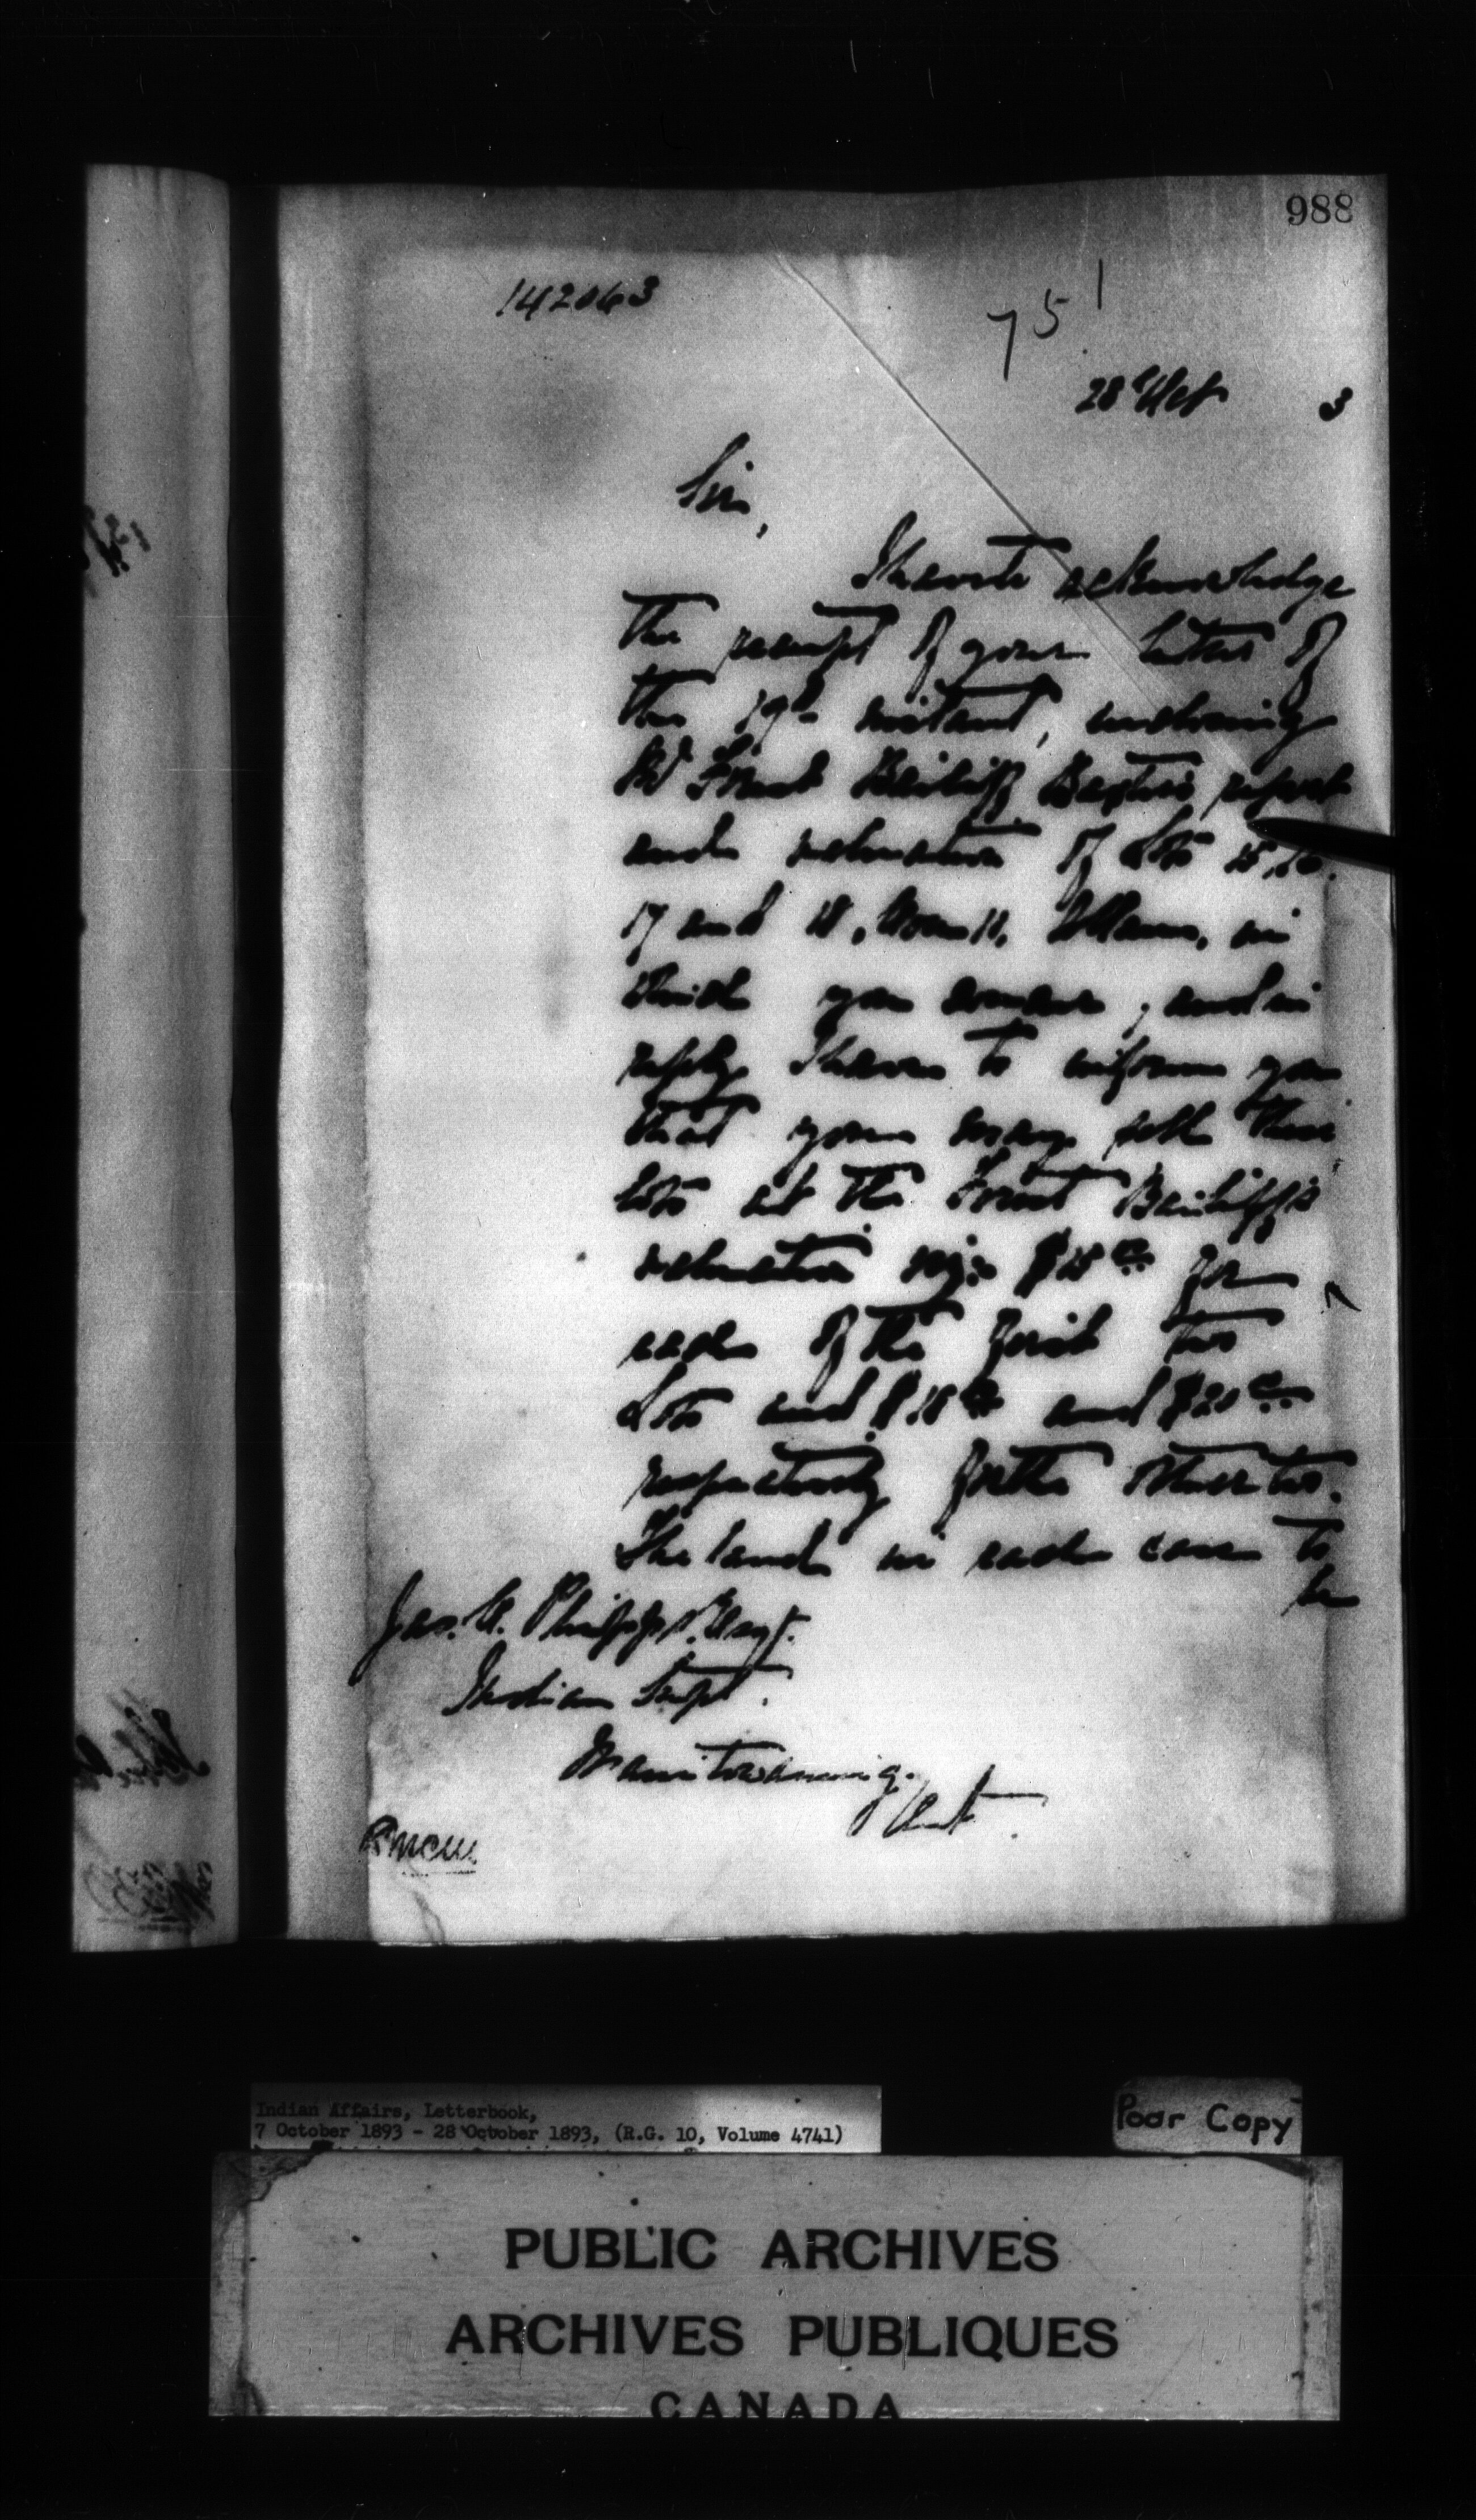 988
142063
751
28 Oct 3
Sir,
I have to acknowledge
the receipt of your letter of
the 19th instant, enclosing
Forest Bailiff report
and valuation of Lots 15, 16.
17 and 18, Con 11, in
which you concur, and in
reply I have to inform you
that you may sell these
lots at the Forest Bailiff's
valuation viz: $15 00 for
each of the first two
Lots and $18 00 and $20 00
respectively for the other two.
The land in each case to
be
Jas. C. Phipps. Esqr.
Indian Supt.
Manitowaning.
Ont.
Indian Affairs, Letterbook,
7 October 1893 - 28 October 1893, (R.G. 10, Volume 4741)
Poor Copy
PUBLIC ARCHIVES
ARCHIVES PUBLIQUES
CANADA